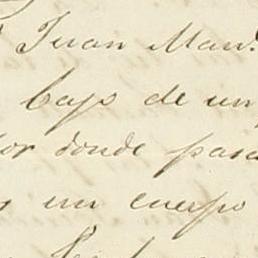 Juan Man.
bajo de un
or donde pasa
un cuerpo